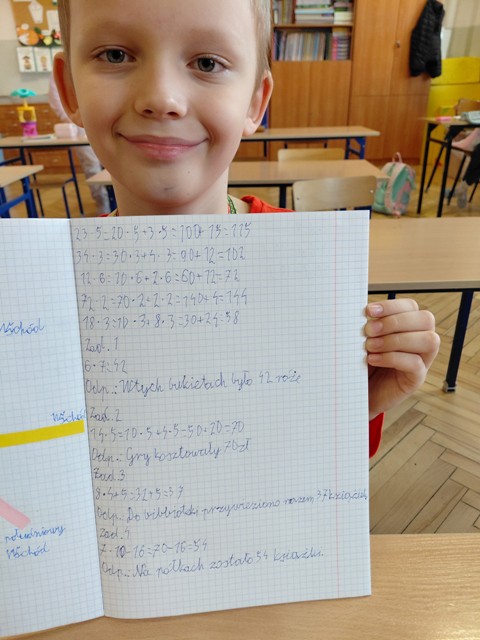 Wschód
Wschód
południowy
Wschód
23·5=20·5+3·5=100+15=115
34·3=30·3+4·3=90+12=102
12·6=10·6+2·6=60+12=72
72·2=70·2+2·2=140+4=144
18·3=10·3+8·3=30+24=58
Zad.1
6·7=42
Odp.: W tych bukietach było 42 róże
Zad.2
14·5=10·5+4·5=50+20=70
Odp.: Gry kosztowały 70zł
Zad.3
8·4+5=32+5=37
Odp.: Do bibliotki przywieziono razem 37 książek
Zad.4
7·10-16=70-16=54
Odp.: Na półkach zostało 54 książki.